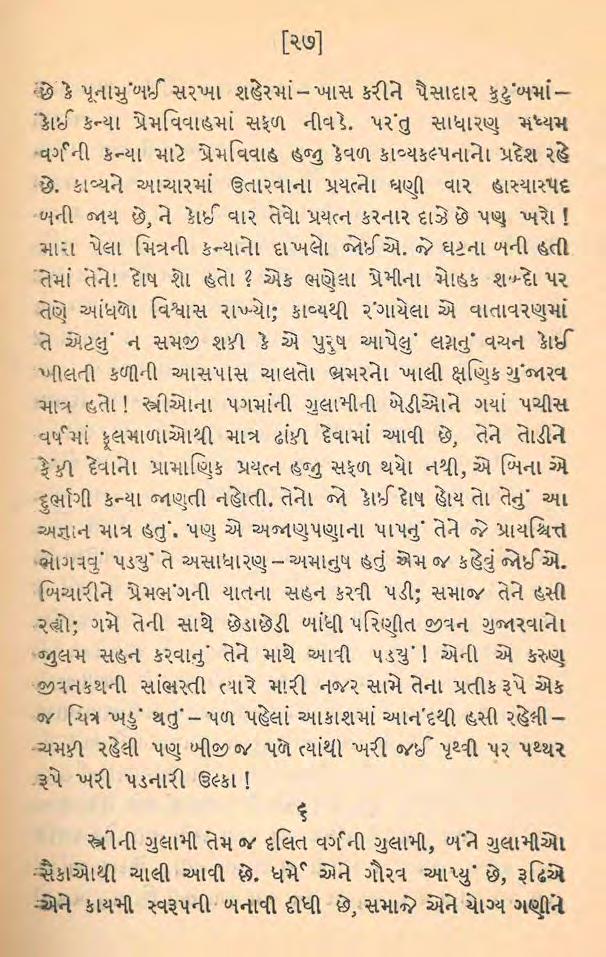 [૨૭]
છે કે પૂનામુંબઈ સરખા શહેરમાં – ખાસ કરીને પૈસાદાર કુટુંબમાં –
કોઈ કન્યા પ્રેમવિવાહમાં સફળ નીવડે. પરંતુ સાધારણ મધ્યમ
વર્ગની કન્યા માટે પ્રેમવિવાહ હજુ કેવળ કાવ્યકલ્પનાનો પ્રદેશ રહે
છે. કાવ્યને આચારમાં ઉતારવાના પ્રયત્નો ઘણી વાર હાસ્યાસ્પદ
બની જાય છે, ને કોઈ વાર તેવો પ્રયત્ન કરનાર દાઝે છે પણ ખરો !
મારા પેલા મિત્રની કન્યાનો દાખલો જોઈએ. જે ઘટના બની હતી
તેમાં તેનો દોષ શો હતો ? એક ભણેલા પ્રેમીના મોહક શબ્દો પર
તેણે આંધળો વિશ્વાસ રાખ્યો; કાવ્યથી રંગાયેલા એ વાતાવરણમાં
તે એટલું ન સમજી શકી કે એ પુરુષ આપેલું લગ્નનું વચન કોઈ
ખીલતી કળીની આસપાસ ચાલતો ભ્રમરનો ખાલી ક્ષણિક ગુંજારવ
માત્ર હતો ! સ્ત્રીઓના પગમાંની ગુલામીની બેડીઓને ગયાં પચીસ
વર્ષમાં ફૂલમાળાઓથી માત્ર ઢાંકી દેવામાં આવી છે, તેને તોડીને
ફેંકી દેવાનો પ્રામાણિક પ્રયત્ન હજુ સફળ થયો નથી, એ બિના એ
દુર્ભાગી કન્યા જાણતી નહોતી. તેનો જો કોઈ દોષ હોય તો તેનું આ
અજ્ઞાન માત્ર હતું. પણ એ અજાણપણાના પાપનું તેને જે પ્રાયશ્ચિત્ત
ભોગવવું પડયું તે અસાધારણ – અમાનુષ હતું એમ જ કહેવું જોઈએ.
બિચારીને પ્રેમભંગની યાતના સહન કરવી પડી; સમાજ તેને હસી
રહ્યો; ગમે તેની સાથે છેડાછેડી બાંધી પરિણીત જીવન ગુજારવાનો
જુલમ સહન કરવાનું તેને માથે આવી પડયું ! એની એ કરુણ
જીવનકથની સાંભરતી ત્યારે મારી નજર સામે તેના પ્રતીક રૂપે એક
જ ચિત્ર ખડું થતું – પળ પહેલાં આકાશમાં આનંદથી હસી રહેલી –
ચમકી રહેલી પણ બીજી જ પળે ત્યાંથી ખરી જઈ પૃથ્વી પર પથ્થર
રૂપે ખરી પડનારી ઉલ્કા !
૬
સ્ત્રીની ગુલામી તેમ જ દલિત વર્ગની ગુલામી, બંને ગુલામીઓ
સૈકાઓથી ચાલી આવી છે. ધર્મે એને ગૌરવ આપ્યું છે, રૂઢિએ
એને કાયમી સ્વરૂપની બનાવી દીધી છે, સમાજે એને યોગ્ય ગણીને